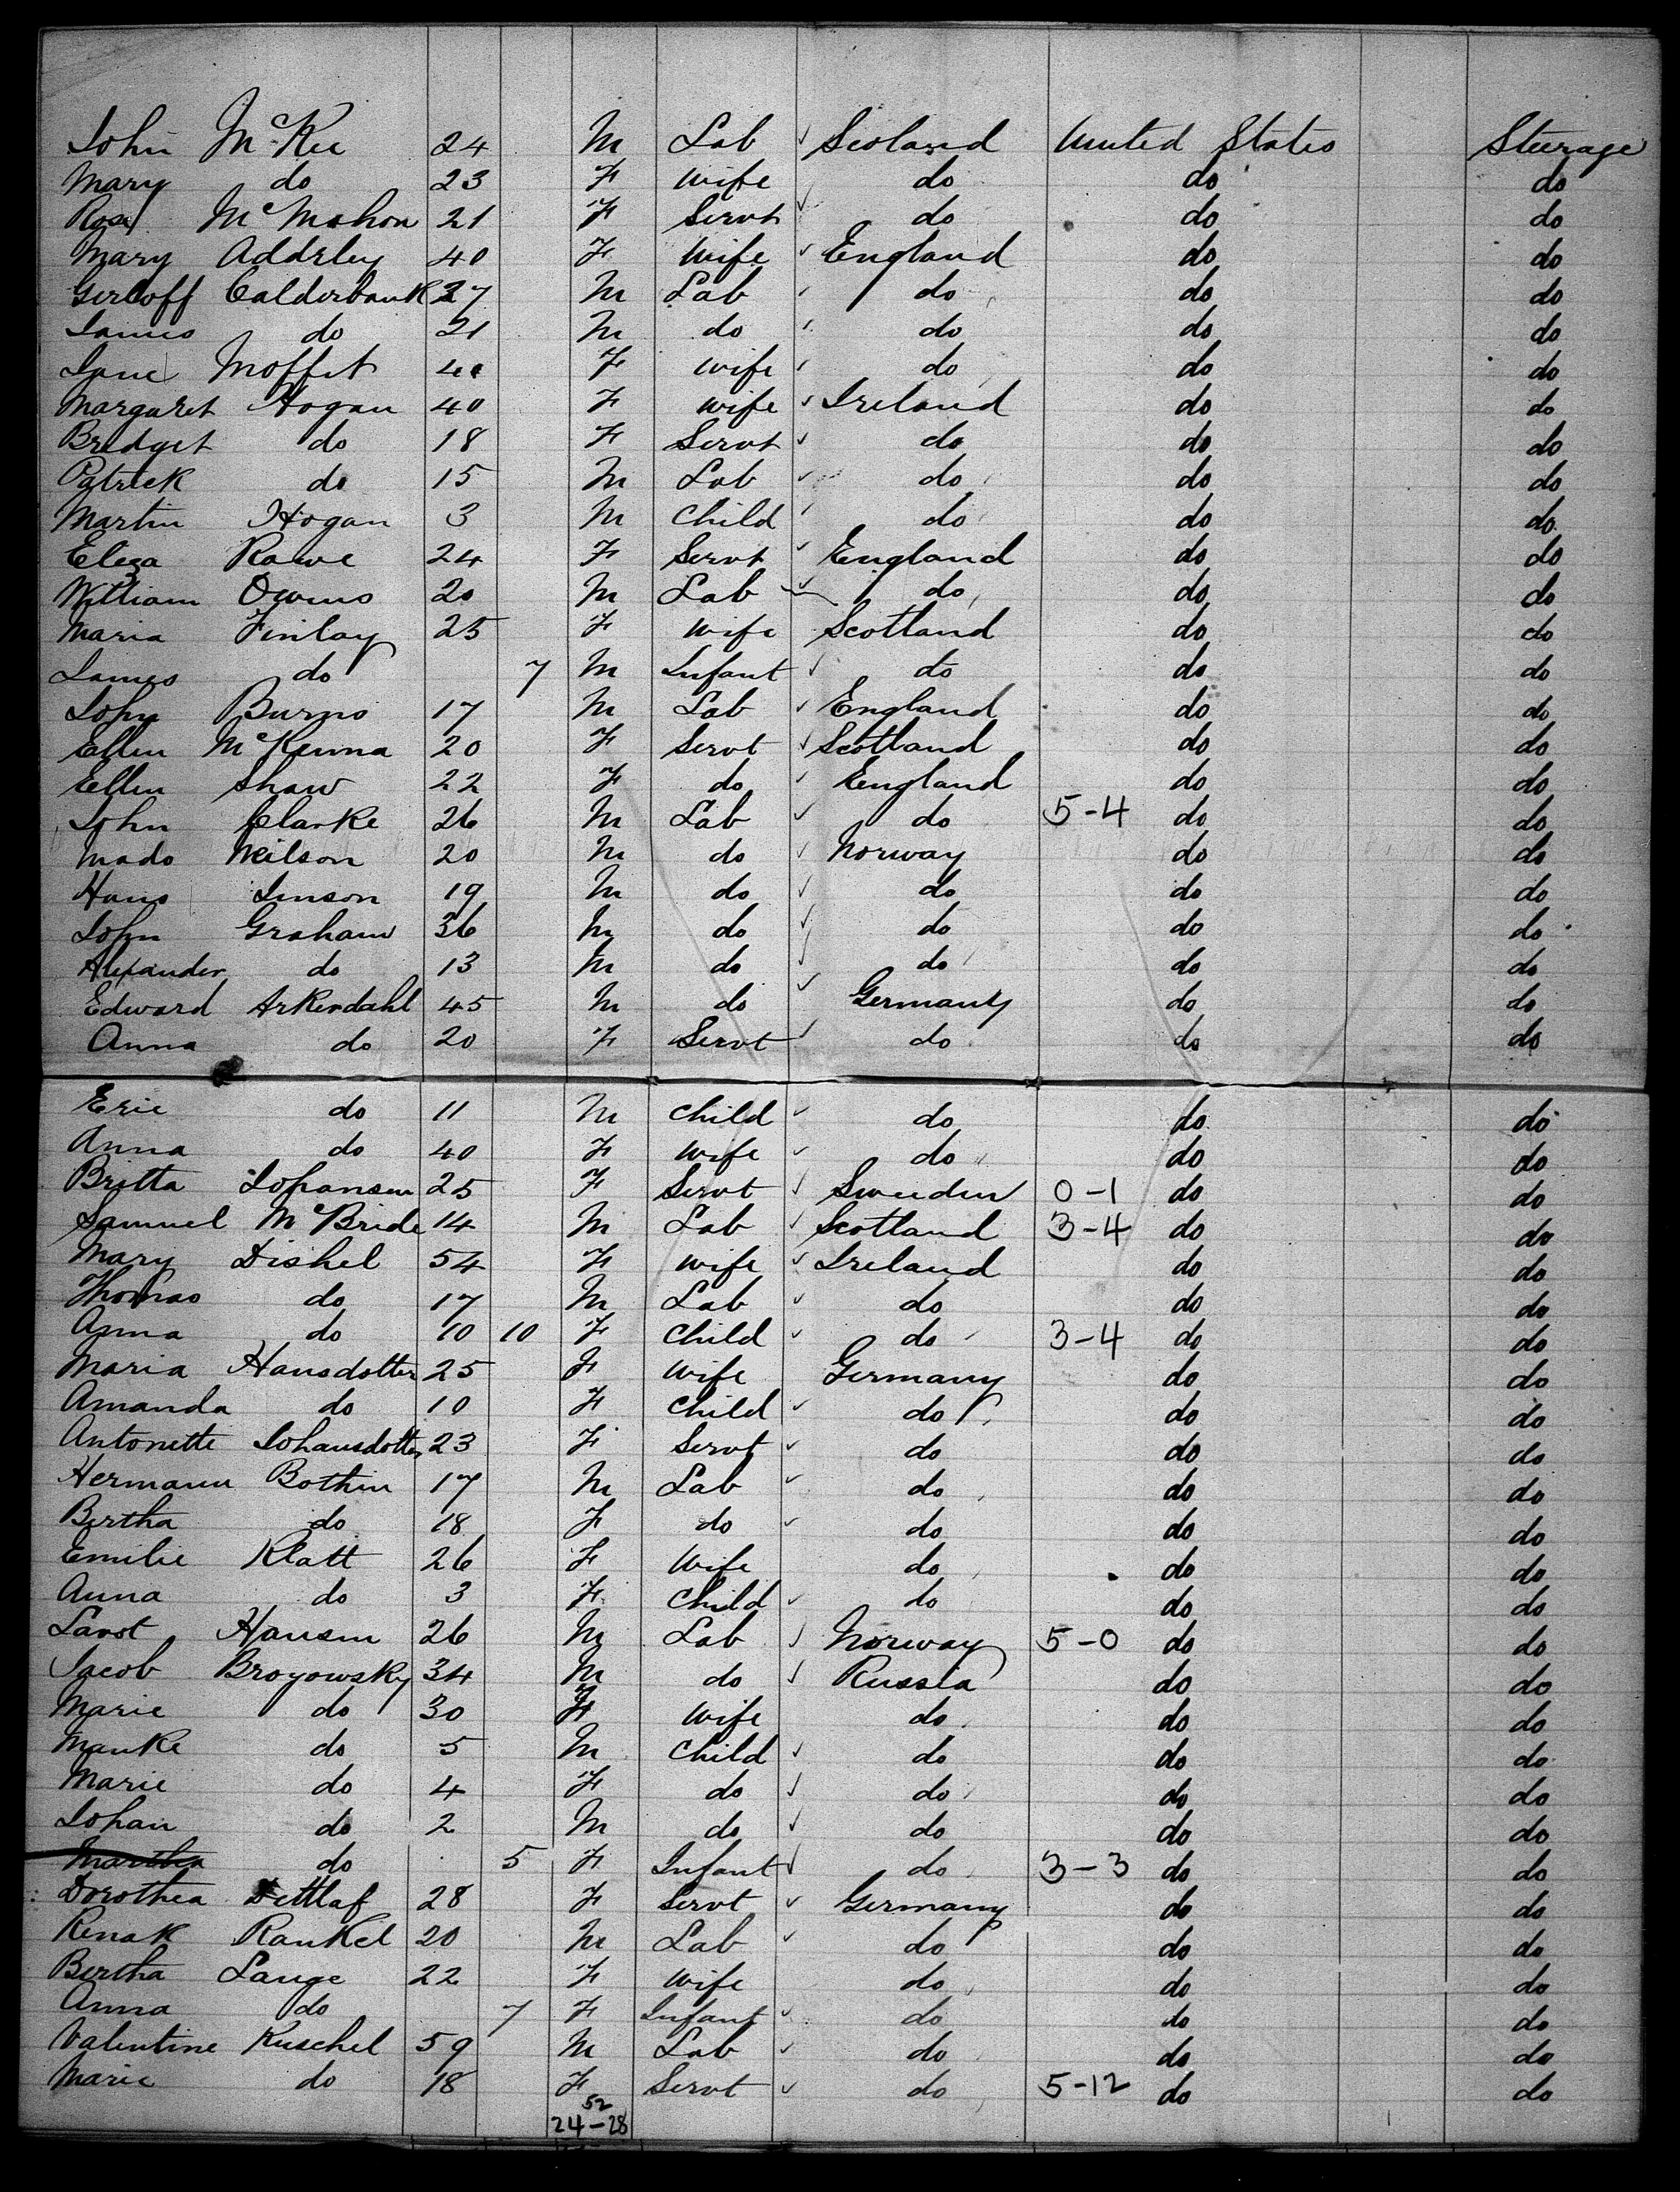 John McKee 24 M Lab Scoland United States Steerage
Mary do 23 F Wife do do do
Rose McMahon 21 F Servt do do do
Mary Addrley 40 F Wife England do do
Calderbank 27 M Lab do do do
James do 21 M do do do do
Jane Moffet 40 F Wife do do do
Margaret Hogan 40 F Wife Ireland do do
Bridget do 18 F Servt do do do
Patrick do 15 M Lab do do do
Martin Hogan 3 M Child do do do
Eleza Rowe 24 F Servt England do do
William Owens 20 M Lab do do do
Maria Finlay 25 F Wife Scotland do do
James do 7 M Infant do do do
John Burns 17 M Lab England do do
Ellen McKenna 20 F Servt Scotland do do
Ellen Shaw 22 F do England do do
John Clarke 26 M Lab do 5-4 do do
Mads Neilson 20 M do Norway do do
Hans Jenson 19 M do do do do
John Graham 36 M do do do do
Alexander do 13 M do do do do
Edward Arkerdahl 45 M do Germany do do
Anna do 20 F Servt do do do
Eric do 11 M Child do do do
Anna do 40 F Wife do do do
Britta Johansen 25 F Servt Sweeden 0-1 do do
Samuel McBride 14 M Lab Scotland 3-4 do do
Mary Dishel 54 F Wife Ireland do do
Thomas do 17 M Lab do do do
Anna do 10 10 F Child do 3-4 do do
Maria Hansdotter 25 F Wife Germany do do
Amanda do 10 F Child do do do
Antonette Johansdotter 23 F Servt do do do
Hermann Bothin 17 M Lab do do do
Bertha do 18 F do do do do
Emilie Klatt 26 F Wife do do do
Anna do 3 F Child do do do
Hansen 26 M Lab Norway 5-0 do do
Jacob Broyowsky 34 M do Russia do do
Marie do 30 F Wife do do do
Manke do 5 M Child do do do
Marie do 4 F do do do do
Johan do 2 M do do do do
Martha do 5 F Infant do 3-3 do do
Dorothea Dettlaf 28 F Servt Germany do do
Renak Rankel 20 M Lab do do do
Bertha Lange 22 F Wife do do do
Anna do 7 F Infant do do do
Valentine Kuschel 59 M Lab do do do
Marie do 18 F Servt do 5-12 do do
52
24-28